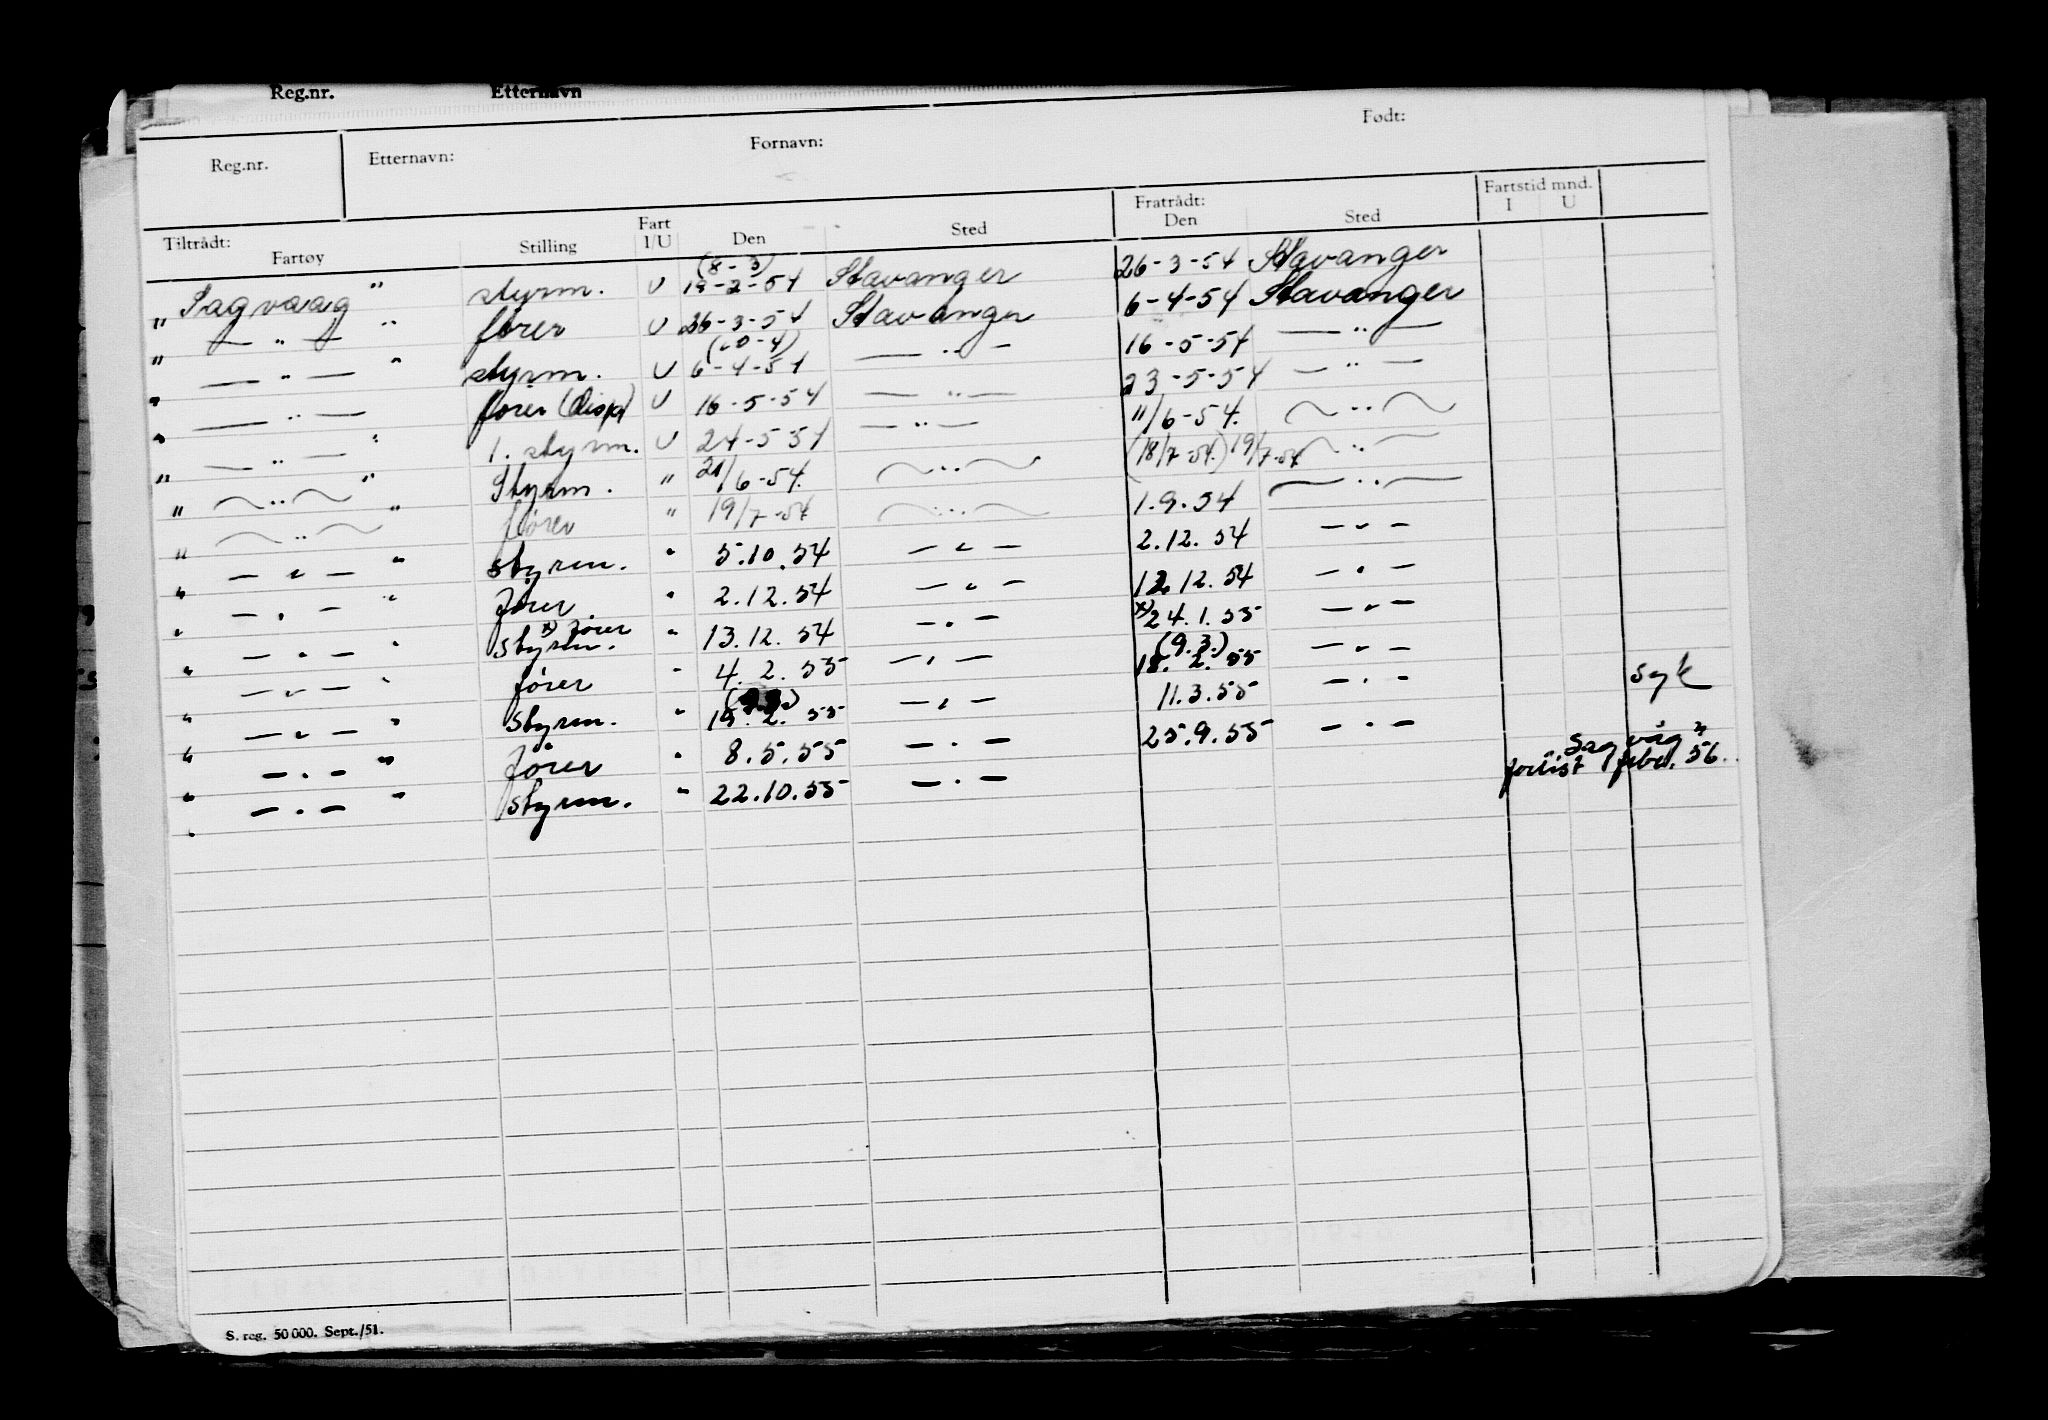 Reg.nr. Etternavn
Reg.nr. Etternavn: Fornavn: Født:
Tiltrådt: Fratrådt: Fartstid mnd.
Fartøy Stilling Fart I/U Den Sted Den Sted I U
(8-3)
"Sagvaag" styrm. U 19-2-54 Stavanger 26-3-54 Stavanger
" — " — " fører U 26-3-54 Stavanger 6-4-54 Stavanger
" — " — " styrm. U 6-4-54 — " — 16-5-54 — " —
" — " — fører (disp) U 16-5-54 — " — 23-5-54 — " —
" — " — " 1. styrm. U 24-5-54 — " — "/6-54. — " —
" — " — " Styrm. " 21/6-54. — " — (18/7-54.) 19/7-54 — " —
" — " — " fører " 19/7-54 — " — 1.9.54 — " —
" — " — " styrm. " 5.10.54 — " — 2.12.54 — " —
" — " — " fører " 2.12.54 — " — 12.12.54 — " —
x) fører
" — " — " styrm. " 13.12.54 — " — x) 24.1.55 — " —
(9.3.)
" — " — " fører " 4.2.55 — " — 18.2.55 — " —
" — " — " styrm. " 19.2.55 — " — 11.3.55 — " — syk
" — " — " fører " 8.5.55 — " — 25.9.55 — " —
" — " — " styrm. " 22.10.55 — " — Sagvåg"
forlist febr. 56.
"
S. reg. 50 000. Sept./51.